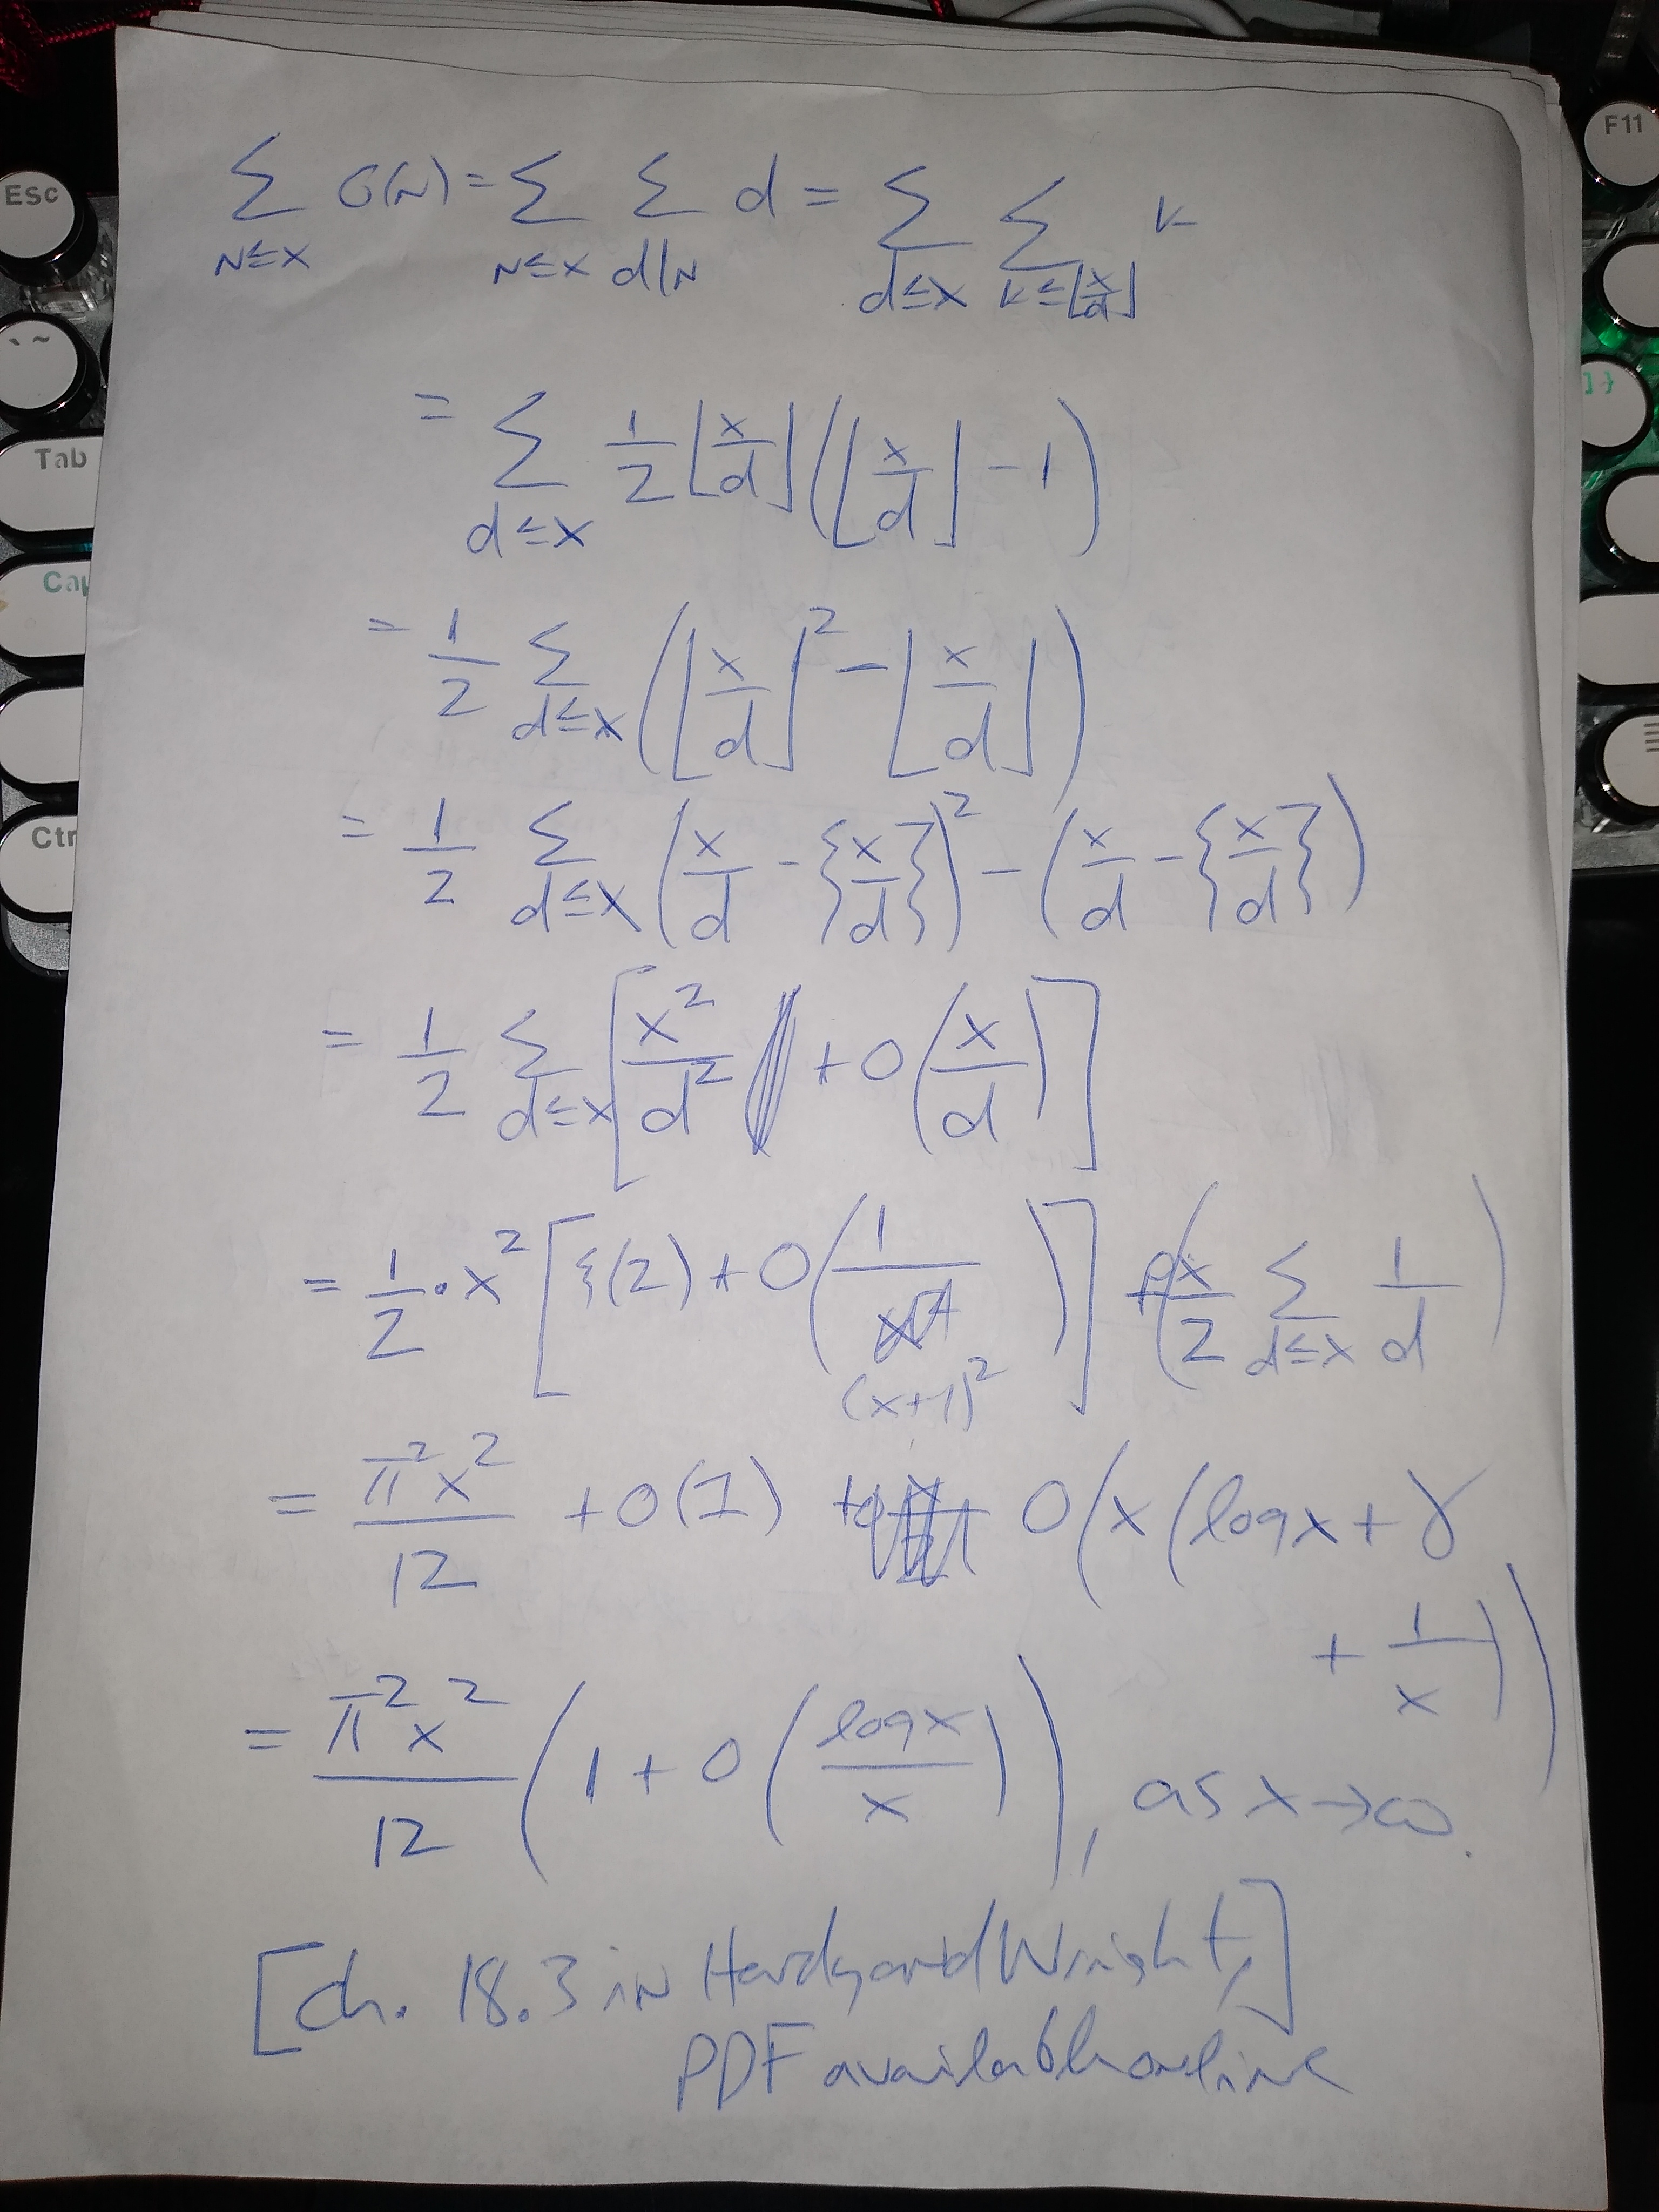 Esc
F11
`~
Tab
]}
Cap
Ctr
∑_{N≤x} σ(N) = ∑_{N≤x} ∑_{d|N} d = ∑_{d≤x} ∑_{k≤⌊x/d⌋} k
= ∑_{d≤x} 1/2 ⌊x/d⌋(⌊x/d⌋ - 1)
= 1/2 ∑_{d≤x} (⌊x/d⌋^2 - ⌊x/d⌋)
= 1/2 ∑_{d≤x} (x/d - {x/d})^2 - (x/d - {x/d})
= 1/2 ∑_{d≤x} [x^2/d^2 + O(x/d)]
= 1/2 · x^2 [ζ(2) + O(1/(x+1)^2)] + O(x/2 ∑_{d≤x} 1/d)
= π^2 x^2/12 + O(1) + O(x(log x + γ
+ 1/x))
= π^2 x^2/12 (1 + O(log x/x)), as x→∞.
[Ch. 18.3 in Hardy and Wright,]
PDF available online